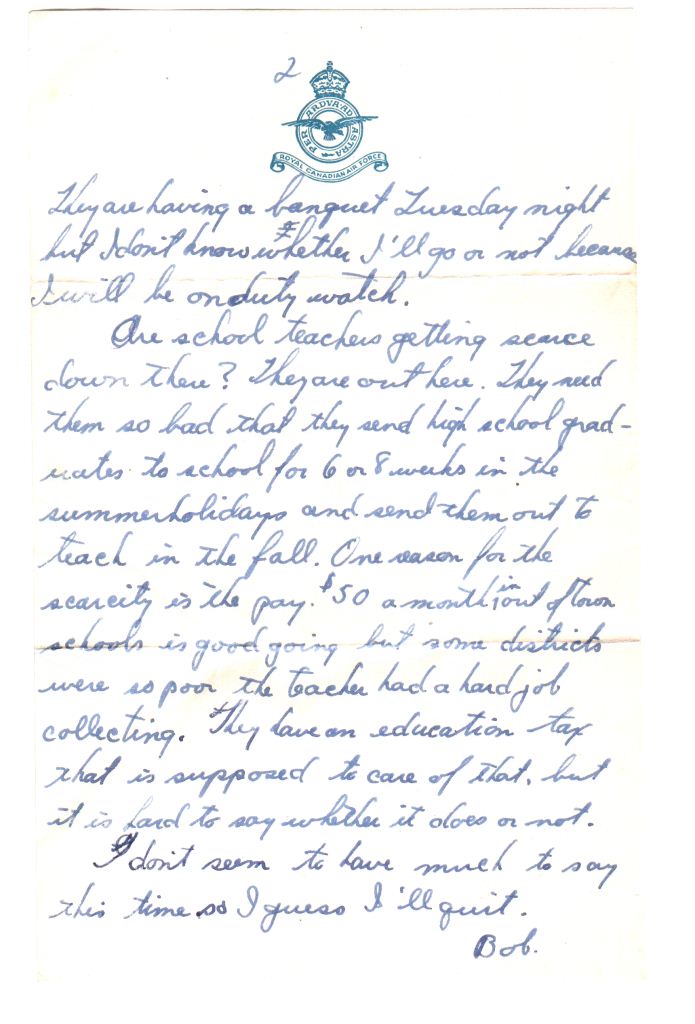 2
PER ARDVA AD ASTRA
ROYAL CANADIAN AIR FORCE
They are having a banquet Tuesday night
but I don't know whether I'll go or not because
I will be on duty watch.
Are school teachers getting scarce
down there? They are out here. They need
them so bad that they send high school grad-
uates to school for 6 or 8 weeks in the
summer holidays and send them out to
teach in the fall. One reason for the
scarcity is the pay. $50 a month in out of town
schools is good going but some districts
were so poor the teacher had a hard job
collecting. They have an education tax
that is supposed to care of that, but
it is hard to say whether it does or not.
I don't seem to have much to say
this time so I guess I'll quit.
Bob.